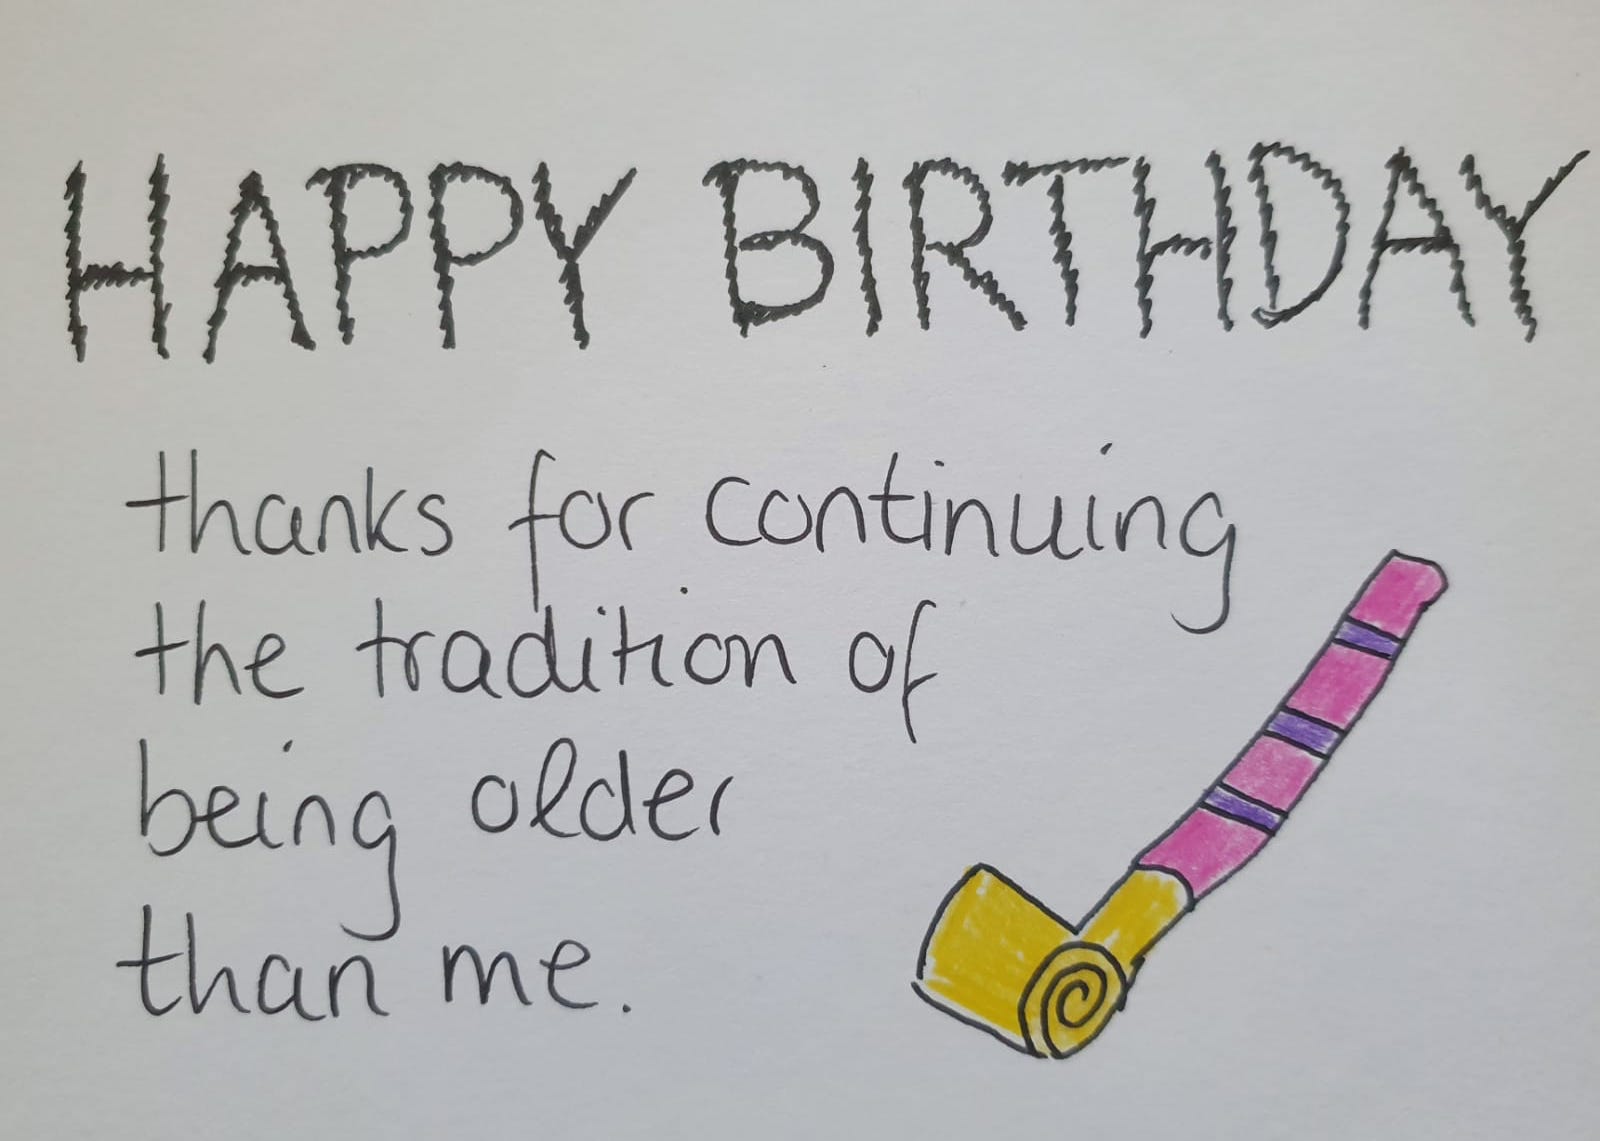 HAPPY BIRTHDAY
thanks for continuing
the tradition of
being older
than me.